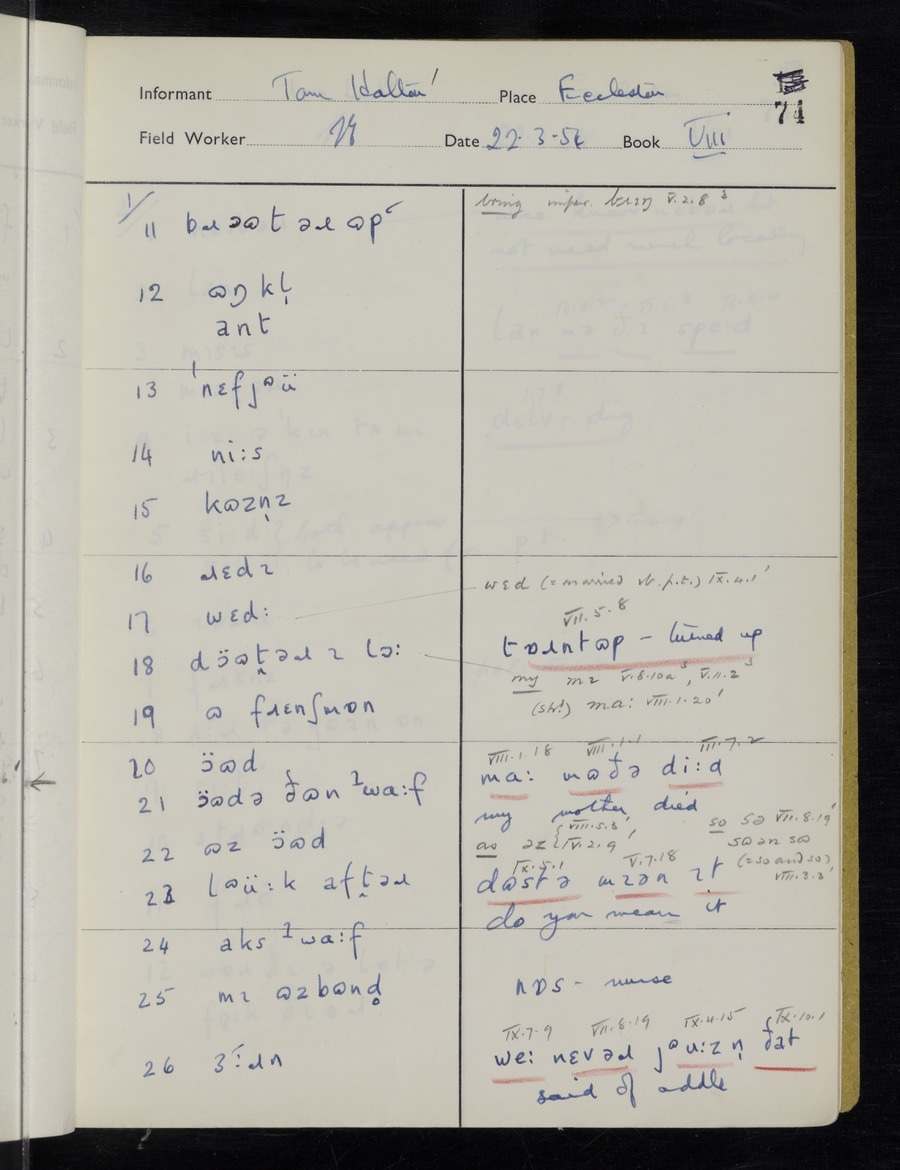 Informant Tom Halton Place Eccleston
74
Field Worker Date 22-3-54 Book VIII
1/
11 bɹɔɷt əɹ ɷp
12 ɷŋ kl̩
ant
13 ˈnɛfjᶷü
14 ni:s
15 kɷzn̩z
16 ɹɛdɪ
17 wɛd:
18 dɔ̈ɷt̪əɹ ɪ lɔ:
19 ɷ fɹɛnʃmɒn
20 ɔ̈ɷd
21 ɔ̈ɷdə ðɷn ʔwa:f
22 ɷz ɔ̈ɷd
23 lᶷü:k aft̪əɹ
24 aks ʔwa:f
25 mɪ ɷzbɷnd̥
26 ɜ:ɹn
bring imper. bɹɪŋ V.2.8³
wɛd (= married vb. p.t.) IX.4.1'
VII.5.8
tɒɹntɷp - turned up
my mɪ V.8.10a³, V.11.2³
(str!) ma: VIII.1.20'
VIII.1.18 VIII.1.1 III.7.2
ma: mɷðə di:d
my mother died
as əz { VIII.5.3' IV.2.9' so sə VII.8.19'
sɷ ən sɷ (= so and so) VIII.3.3'
IX.5.1 V.7.18
dɷstə mɪən ɪt
do you mean it
nɒs - nurse
IX.7.9 VII.8.19 IX.4.15 IX.10.1
we: nɛvəɹ jᶷu:zn̩ ðat
said of addle